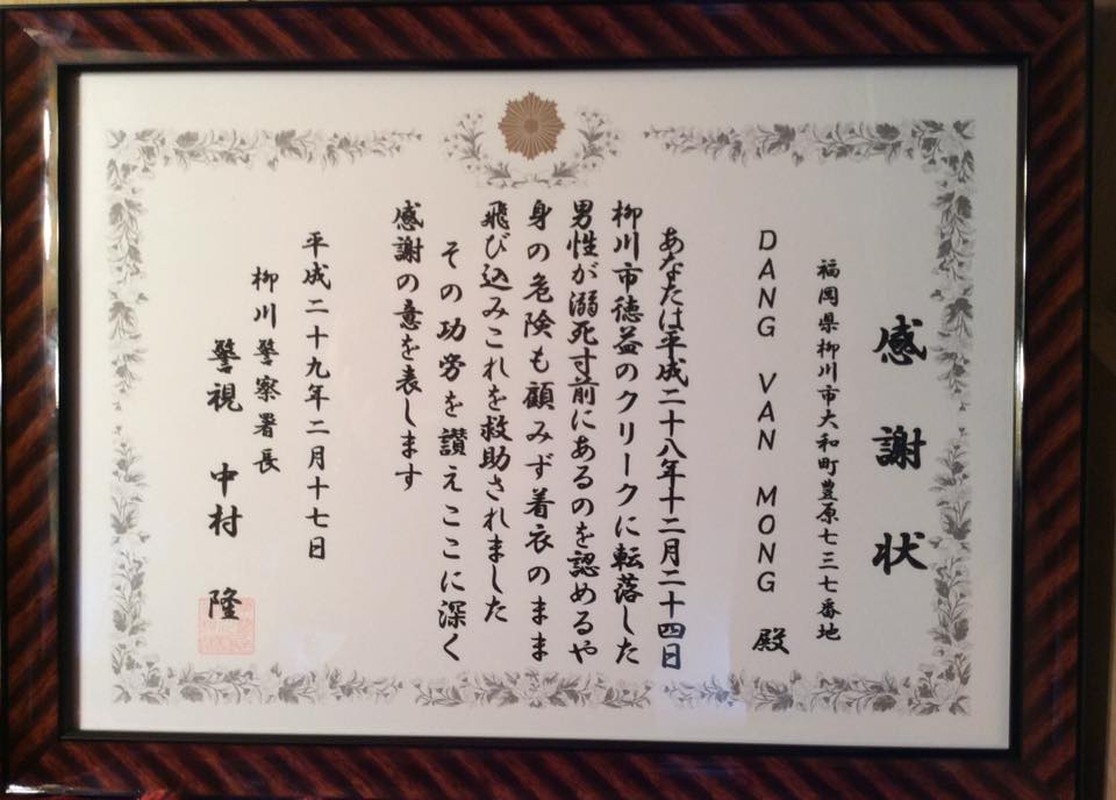 感謝状
福岡県柳川市大和町豊原七三七番地
DANG VAN MONG 殿
あなたは平成二十八年十二月二十四日
柳川市徳益のクリークに転落した
男性が溺死寸前にあるのを認めるや
身の危険も顧みず着衣のまま
飛び込みこれを救助されました
その功労を讃えここに深く
感謝の意を表します
平成二十九年二月十七日
柳川警察署長
警視 中村 隆